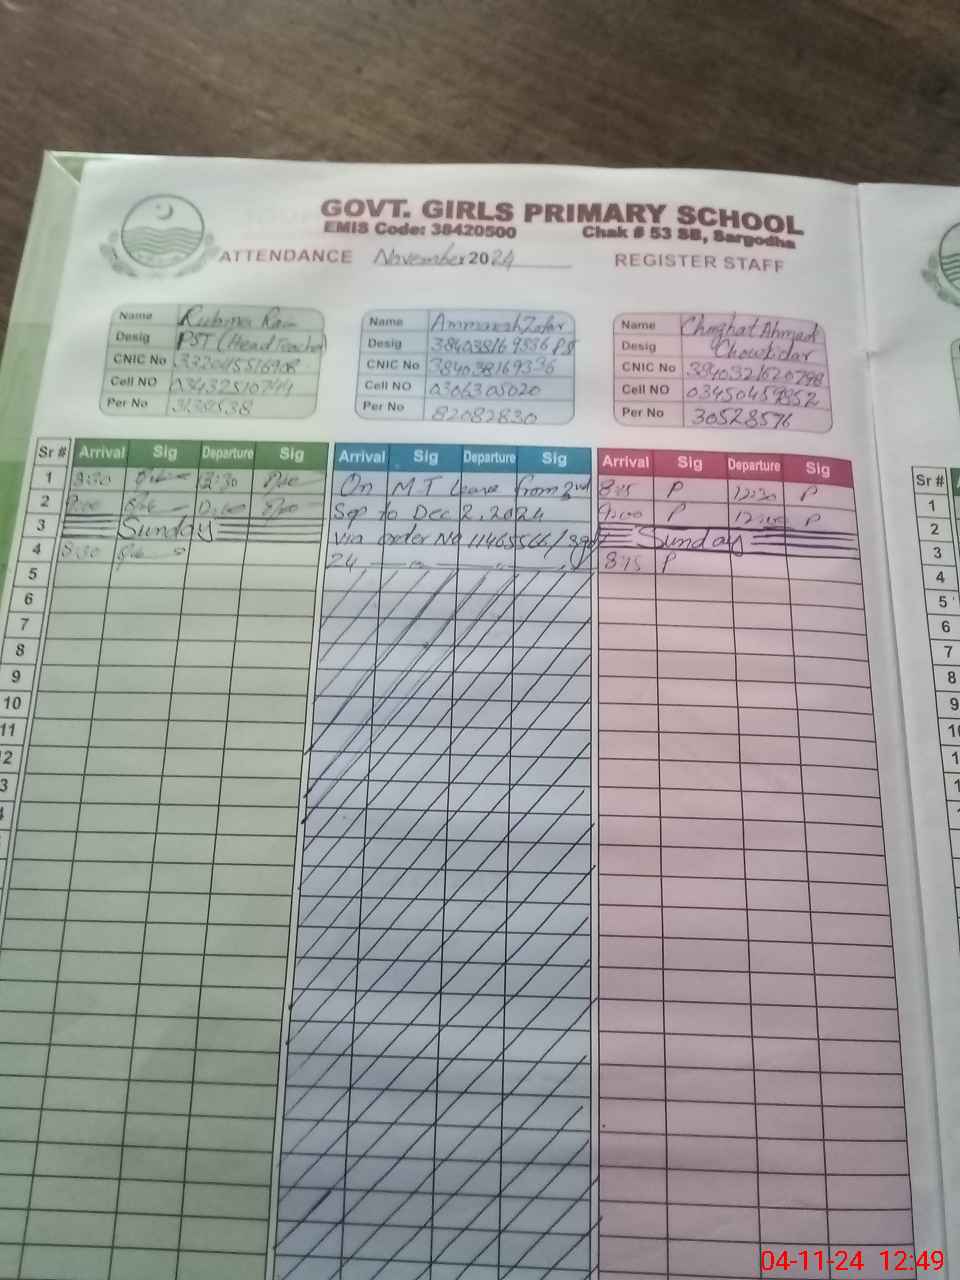 GOVT. GIRLS PRIMARY SCHOOL
EMIS Code: 38420500 Chak # 53 SB, Sargodha
ATTENDANCE November 2024 REGISTER STAFF
Name Rubina
Desig PST (Head Teacher)
CNIC No
Cell NO
Per No
Name Zafar
Desig
CNIC No 384038169336
Cell NO 0306305020
Per No 82082830
Name Ahmad
Desig Chowkidar
CNIC No
Cell NO
Per No 30528576
Sr # Arrival Sig Departure Sig Arrival Sig Departure Sig Arrival Sig Departure Sig
1 8:30 On M.T Leave from 2nd 8:15 P 12:30 P
2 9:00 Sep to Dec 2, 2024 9:00 P 12:00 P
3 Sunday Via order No Sunday
4 8:30 24 8:15 P
5
6
7
8
9
10
11
2
3
4
Sr #
1
2
3
4
5
6
7
8
9
1
1
1
04-11-24 12:49